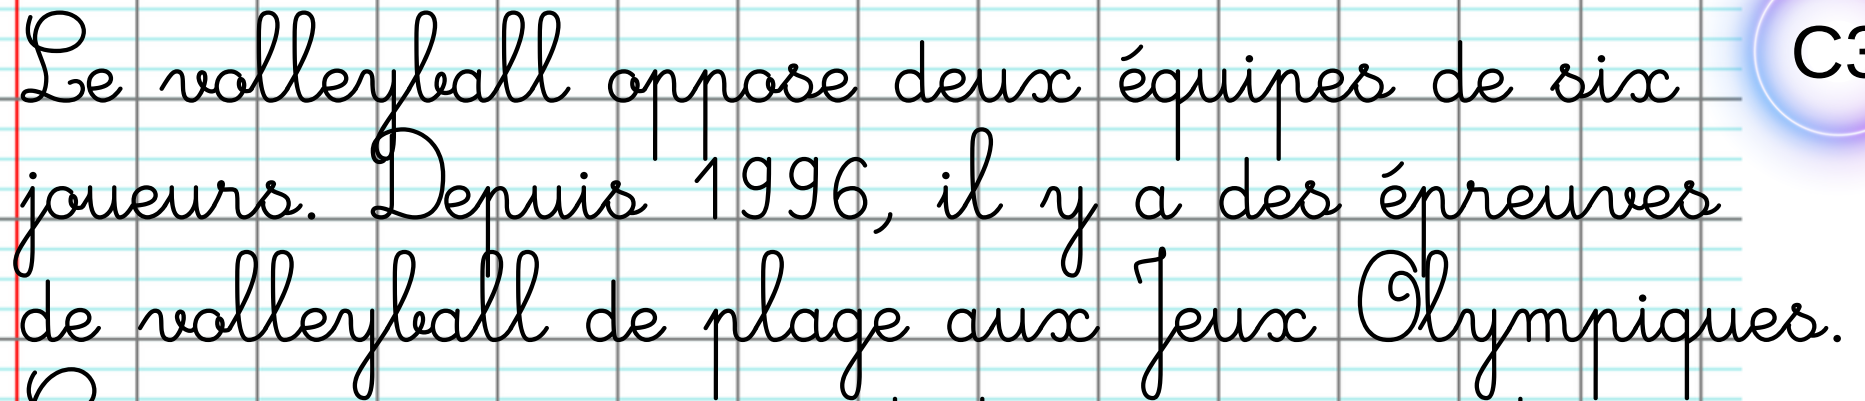 Le volleyball oppose deux équipes de six
joueurs. Depuis 1996, il y a des épreuves
de volleyball de plage aux Jeux Olympiques.
C3